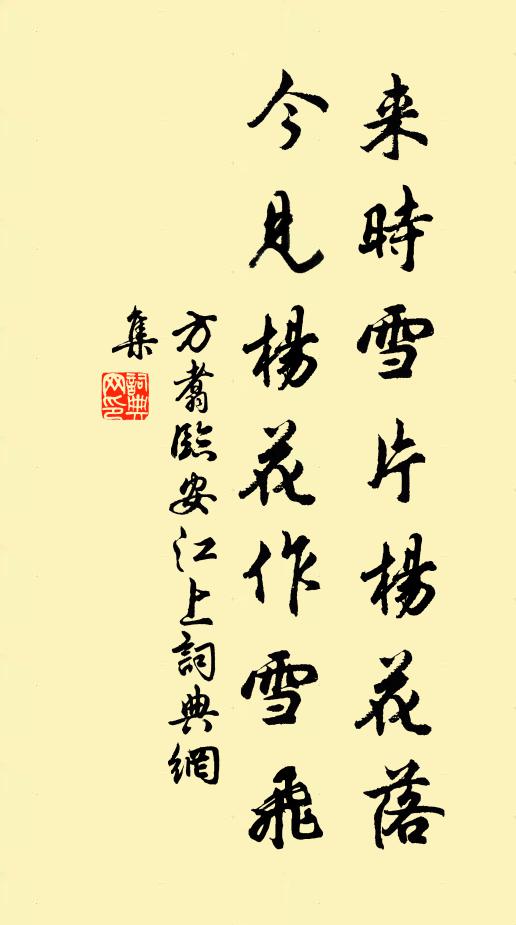 来時雪片楊花落
今見楊花作雪飛
方翥臨安江上詞典網
集
詞典
网印